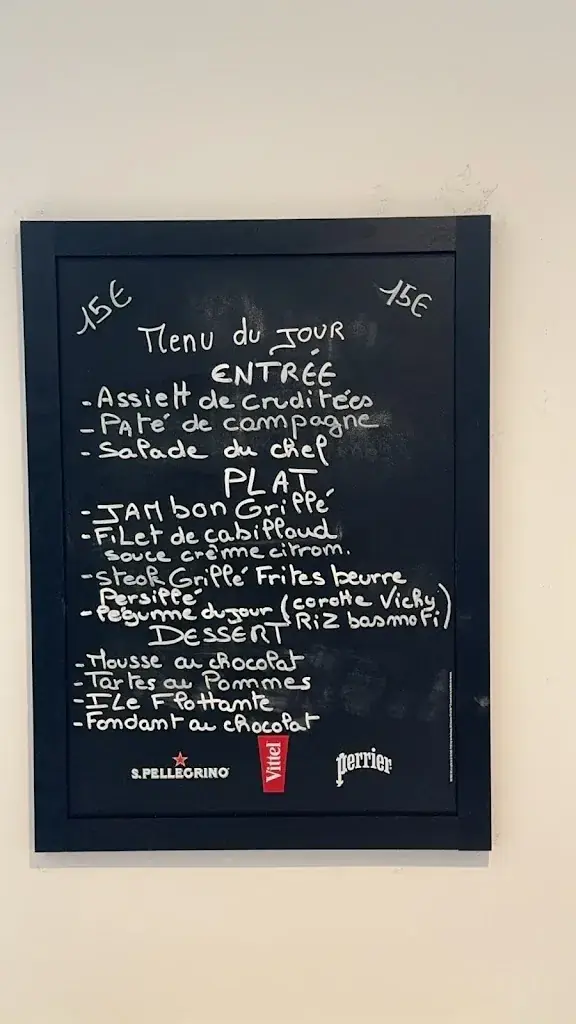 15€ 15€
Menu du JOUR
ENTRÉE
- Assiett de cruditées
- PAté de campagne
- Salade du chef
PLAT
- JAMbon Grillé
- FiLet de cabillaud
souce crème citrom.
- steak Grillé Frites beurre
Persillé
- légumme du jour (carotte Vichy
RiZ basmati)
DESSERT
- Mousse au chocolat
- Tartes au Pommes
- ILe Flottante
- Fondant au chocolat
S.PELLEGRINO Vittel perrier